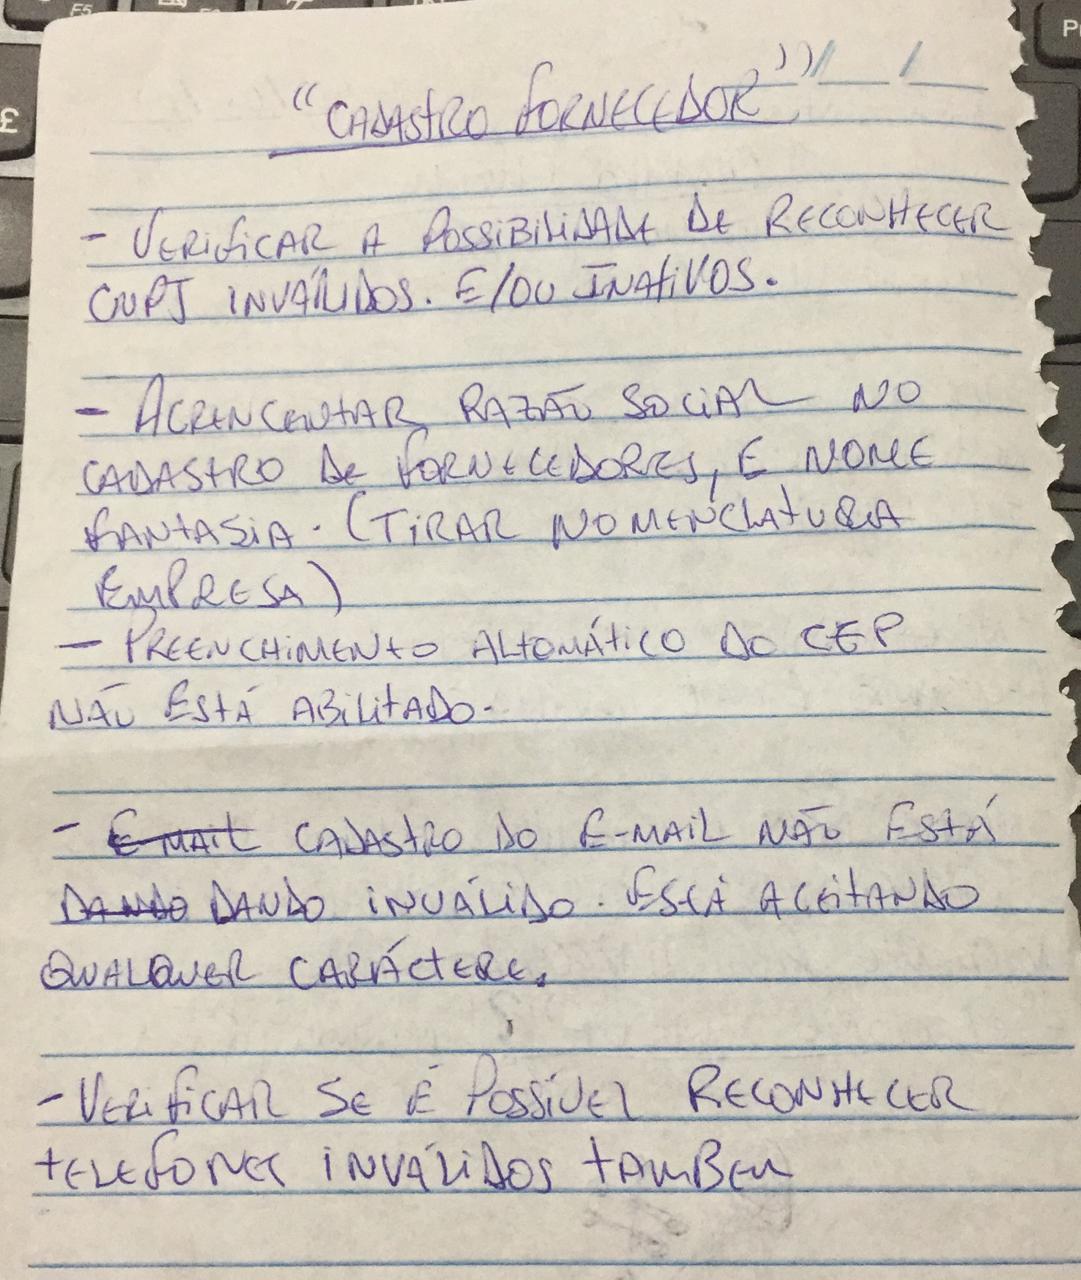 "CADASTRO FORNECEDOR"
- VERIFICAR A POSSIBILIDADE DE RECONHECER
CNPJ INVÁLIDOS. E/OU INATIVOS.
- ACRENCENTAR RAZÃO SOCIAL NO
CADASTRO DE FORNECEDORES, E NOME
FANTASIA. (TIRAR NOMENCLATURA
EMPRESA)
- PREENCHIMENTO ALTOMÁTICO DO CEP
NÃO ESTÁ ABILITADO.
- E-MAIL CADASTRO DO E-MAIL NÃO ESTÁ
DANDO DANDO INVÁLIDO. ESTÁ ACEITANDO
QUALQUER CARÁCTERE.
- VERIFICAR SE É POSSÍVEL RECONHECER
TELEFONES INVÁLIDOS TAMBEM